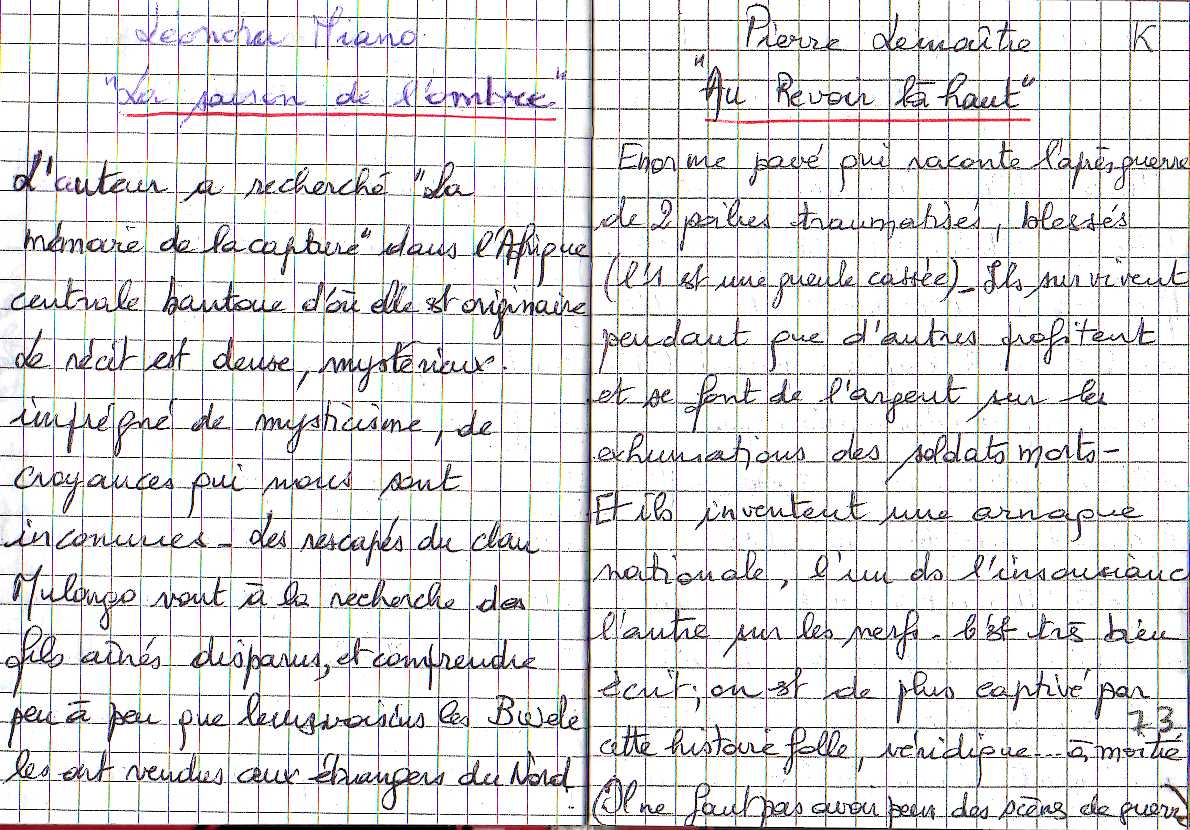 Leonora Miano
"La saison de l'ombre"
L'auteur a recherché "la
mémoire de la capture" dans l'Afrique
centrale bantoue d'où elle est originaire
Le récit est dense, mystérieux.
imprégné de mysticisme, de
croyances qui nous sont
inconnues - Les rescapés du clan
Mulongo vont à la recherche des
fils aînés disparus, et comprendre
peu à peu que leurs voisins les Bwele
les ont vendus aux étrangers du Nord
Pierre Lemaître K
"Au Revoir là haut"
Enorme pavé qui raconte l'après guerre
de 2 poilus traumatisés, blessés
(l'1 est une gueule cassée) - Ils survivent
pendant que d'autres profitent
et se font de l'argent sur les
exhumations des soldats morts -
Et ils inventent une arnaque
nationale, l'un ds l'insoucianc
l'autre sur les nerfs. C'est très bien
écrit, on est de plus captivé par
73
cette histoire folle, véridique... à moitié
(Il ne faut pas avoir peur des scèns de guerre)